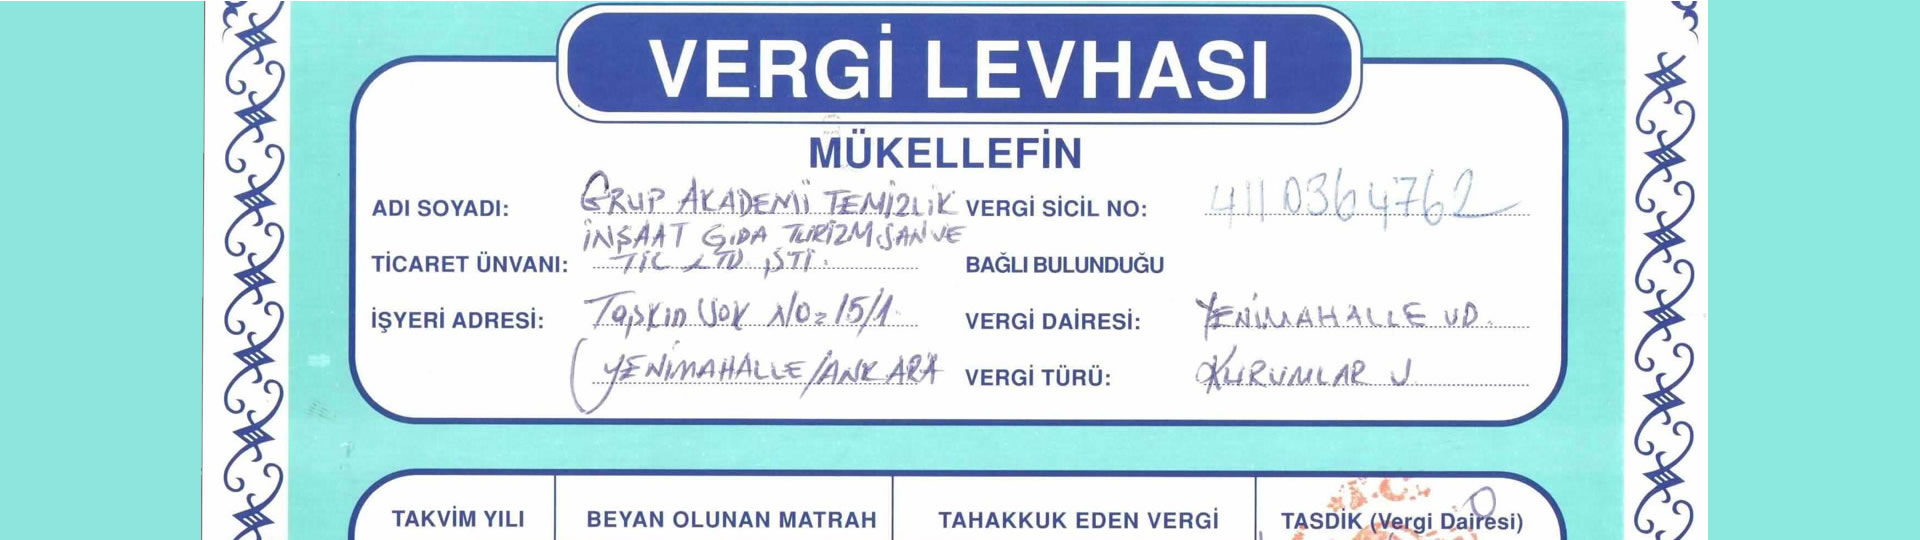 VERGİ LEVHASI
MÜKELLEFİN
ADI SOYADI: GRUP AKADEMİ TEMİZLİK VERGİ SİCİL NO: 4110364762
İNŞAAT GIDA TURİZM SAN VE
TİCARET ÜNVANI: TİC LTD ŞTİ. BAĞLI BULUNDUĞU
İŞYERİ ADRESİ: Taşkın Sok No: 15/1. VERGİ DAİRESİ: YENİMAHALLE VD.
YENİMAHALLE/ANKARA VERGİ TÜRÜ: KURUMLAR V.
TAKVİM YILI BEYAN OLUNAN MATRAH TAHAKKUK EDEN VERGİ TASDİK (Vergi Dairesi)
T.C.